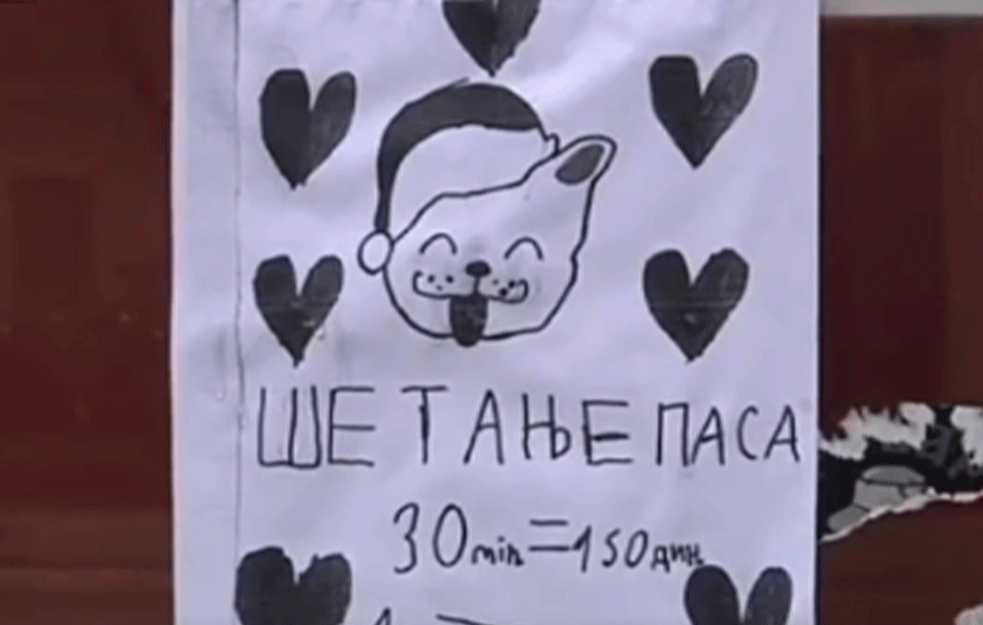 ШЕТАЊЕ ПАСА
30 min = 150 дин.